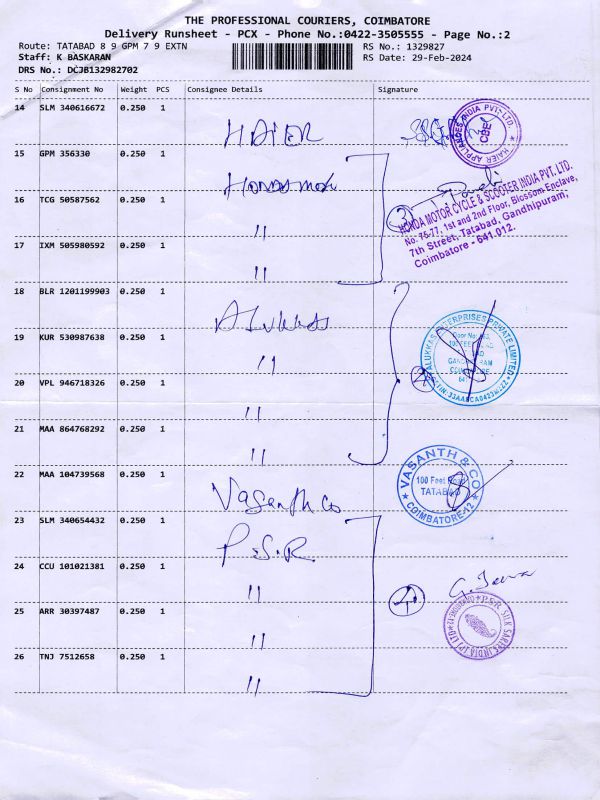 THE PROFESSIONAL COURIERS, COIMBATORE
Delivery Runsheet - PCX - Phone No.:0422-3505555 - Page No.:2
Route: TATABAD 8 9 GPM 7 9 EXTN RS No.: 1329827
Staff: K BASKARAN RS Date: 29-Feb-2024
DRS No.: DCJB132982702
S No Consignment No Weight PCS Consignee Details Signature
14 SLM 340616672 0.250 1
HAIER
HAIER APPLIANCES INDIA PVT. LTD.
CBE
15 GPM 356330 0.250 1
Honda
3
HONDA MOTOR CYCLE & SCOOTER INDIA PVT. LTD.
No. 75-77, 1st and 2nd Floor, Blossom Enclave,
7th Street, Tatabad, Gandhipuram,
Coimbatore - 641 012.
16 TCG 50587562 0.250 1
"
17 IXM 505980592 0.250 1
"
18 BLR 1201199903 0.250 1
19 KUR 530987638 0.250 1
"
ENTERPRISES PRIVATE LIMITED
20 VPL 946718326 0.250 1
"
21 MAA 864768292 0.250 1
"
22 MAA 104739568 0.250 1
Vasanth Co
VASANTH & CO
100 Feet Road
TATABAD
COIMBATORE-12
23 SLM 340654432 0.250 1
P.S.R
24 CCU 101021381 0.250 1
"
4
25 ARR 30397487 0.250 1
"
P.S.R SILK SAREES INDIA (P) LTD
26 TNJ 7512658 0.250 1
"